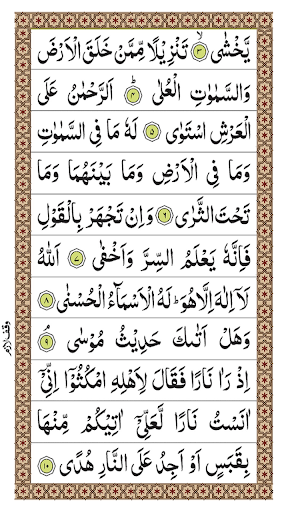 يَّخْشٰى ۙ﴿۳﴾ تَنْزِيْلًا مِّمَّنْ خَلَقَ الْاَرْضَ
وَالسَّمٰوٰتِ الْعُلٰى ؕ﴿۴﴾ اَلرَّحْمٰنُ عَلَى
الْعَرْشِ اسْتَوٰى ﴿۵﴾ لَهٗ مَا فِى السَّمٰوٰتِ
وَمَا فِى الْاَرْضِ وَمَا بَيْنَهُمَا وَمَا
تَحْتَ الثَّرٰى ﴿۶﴾ وَاِنْ تَجْهَرْ بِالْقَوْلِ
فَاِنَّهٗ يَعْلَمُ السِّرَّ وَاَخْفٰى ﴿۷﴾ اَللّٰهُ
لَاۤ اِلٰهَ اِلَّا هُوَ ؕ لَهُ الْاَسْمَآءُ الْحُسْنٰى ﴿۸﴾
وَهَلْ اَتٰىكَ حَدِيْثُ مُوْسٰى ۘ﴿۹﴾
اِذْ رَاٰ نَارًا فَقَالَ لِاَهْلِهِ امْكُثُوْۤا اِنِّىْۤ
اٰنَسْتُ نَارًا لَّعَلِّىْۤ اٰتِيْكُمْ مِّنْهَا
بِقَبَسٍ اَوْ اَجِدُ عَلَى النَّارِ هُدًى ﴿۱۰﴾
وقف لازم